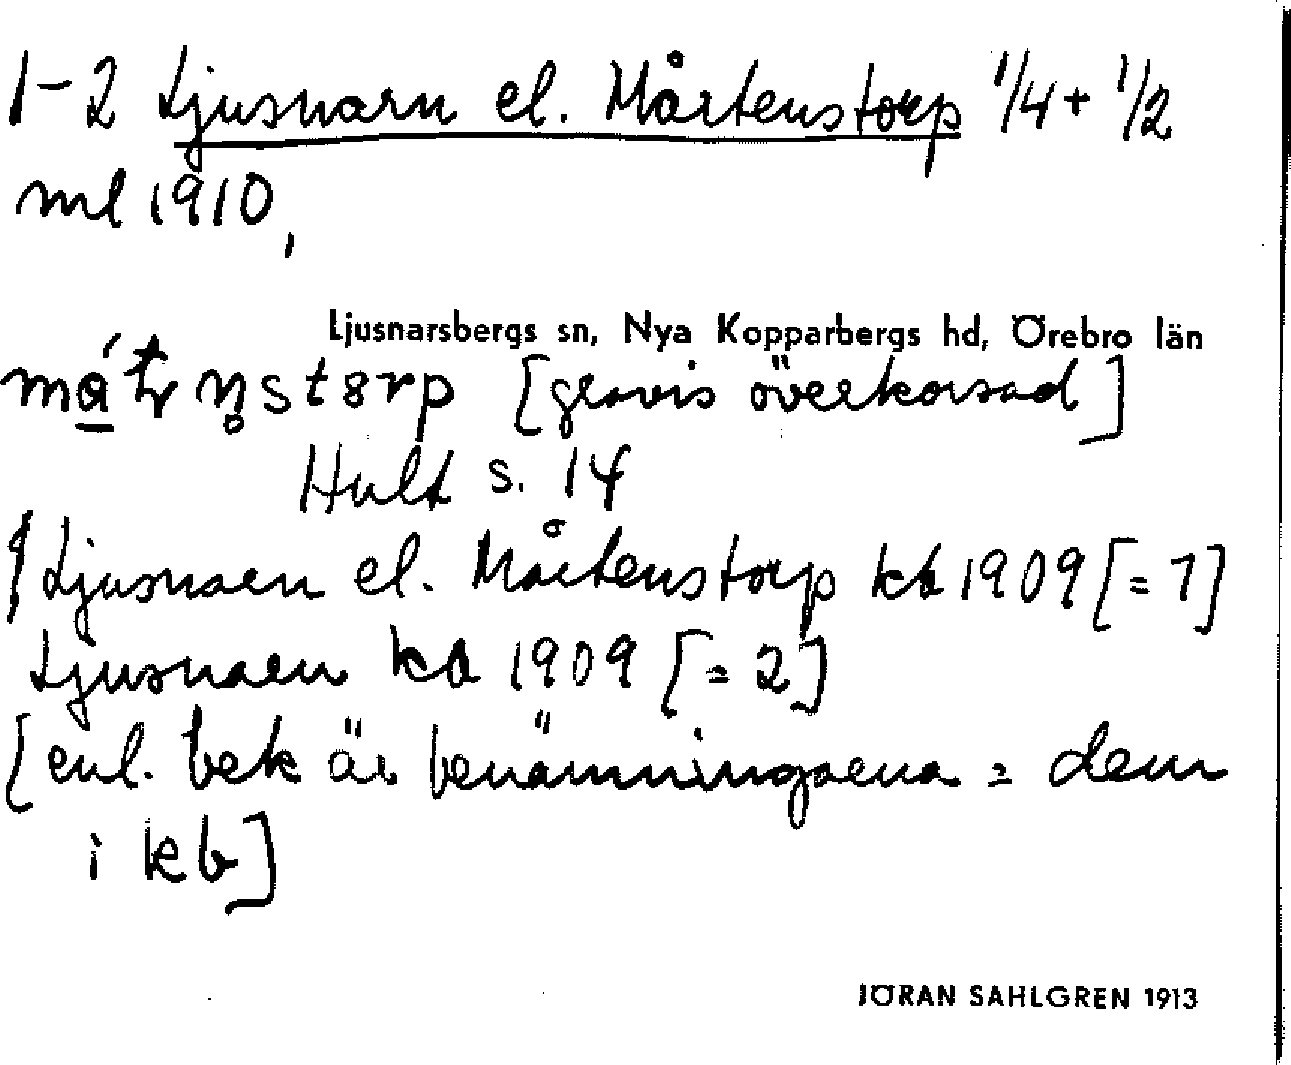 1-2 Ljusnarn el. Mårtenstorp 1/4 + 1/2
ml 1910,
Ljusnarsbergs sn, Nya Kopparbergs hd, Örebro län
[gravis överkorsad]
Hult s. 14
Ljusnarn el. Mårtenstorp kb 1909 [= 1]
Ljusnarn kb 1909 [= 2]
[enl. bek är benämningarna = dem
i kb]
JÖRAN SAHLGREN 1913